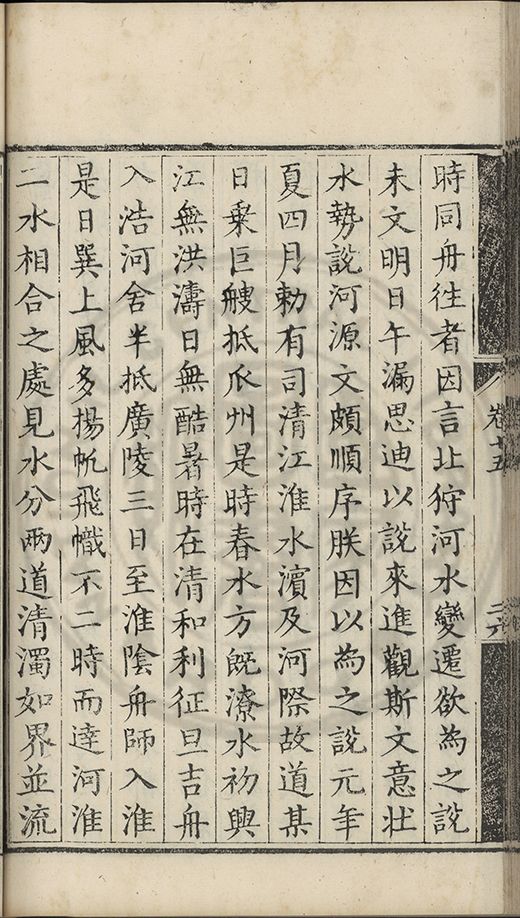 時同舟徃者因言北狩河水變遷欲為之說
未文明日午漏思迪以說來進觀斯文意壯
水勢說河源文頗順序朕因以為之說元年
夏四月勑有司清江淮水濵及河際故道某
日乗巨艘抵瓜州是時春水方旣潦水初興
江無洪濤日無酷暑時在清和利征旦吉舟
入浩河舍半抵廣陵三日至淮陰舟師入淮
是日巽上風多揚帆飛幟不二時而達河淮
二水相合之處見水分兩道清濁如界並流
卷十五
二六